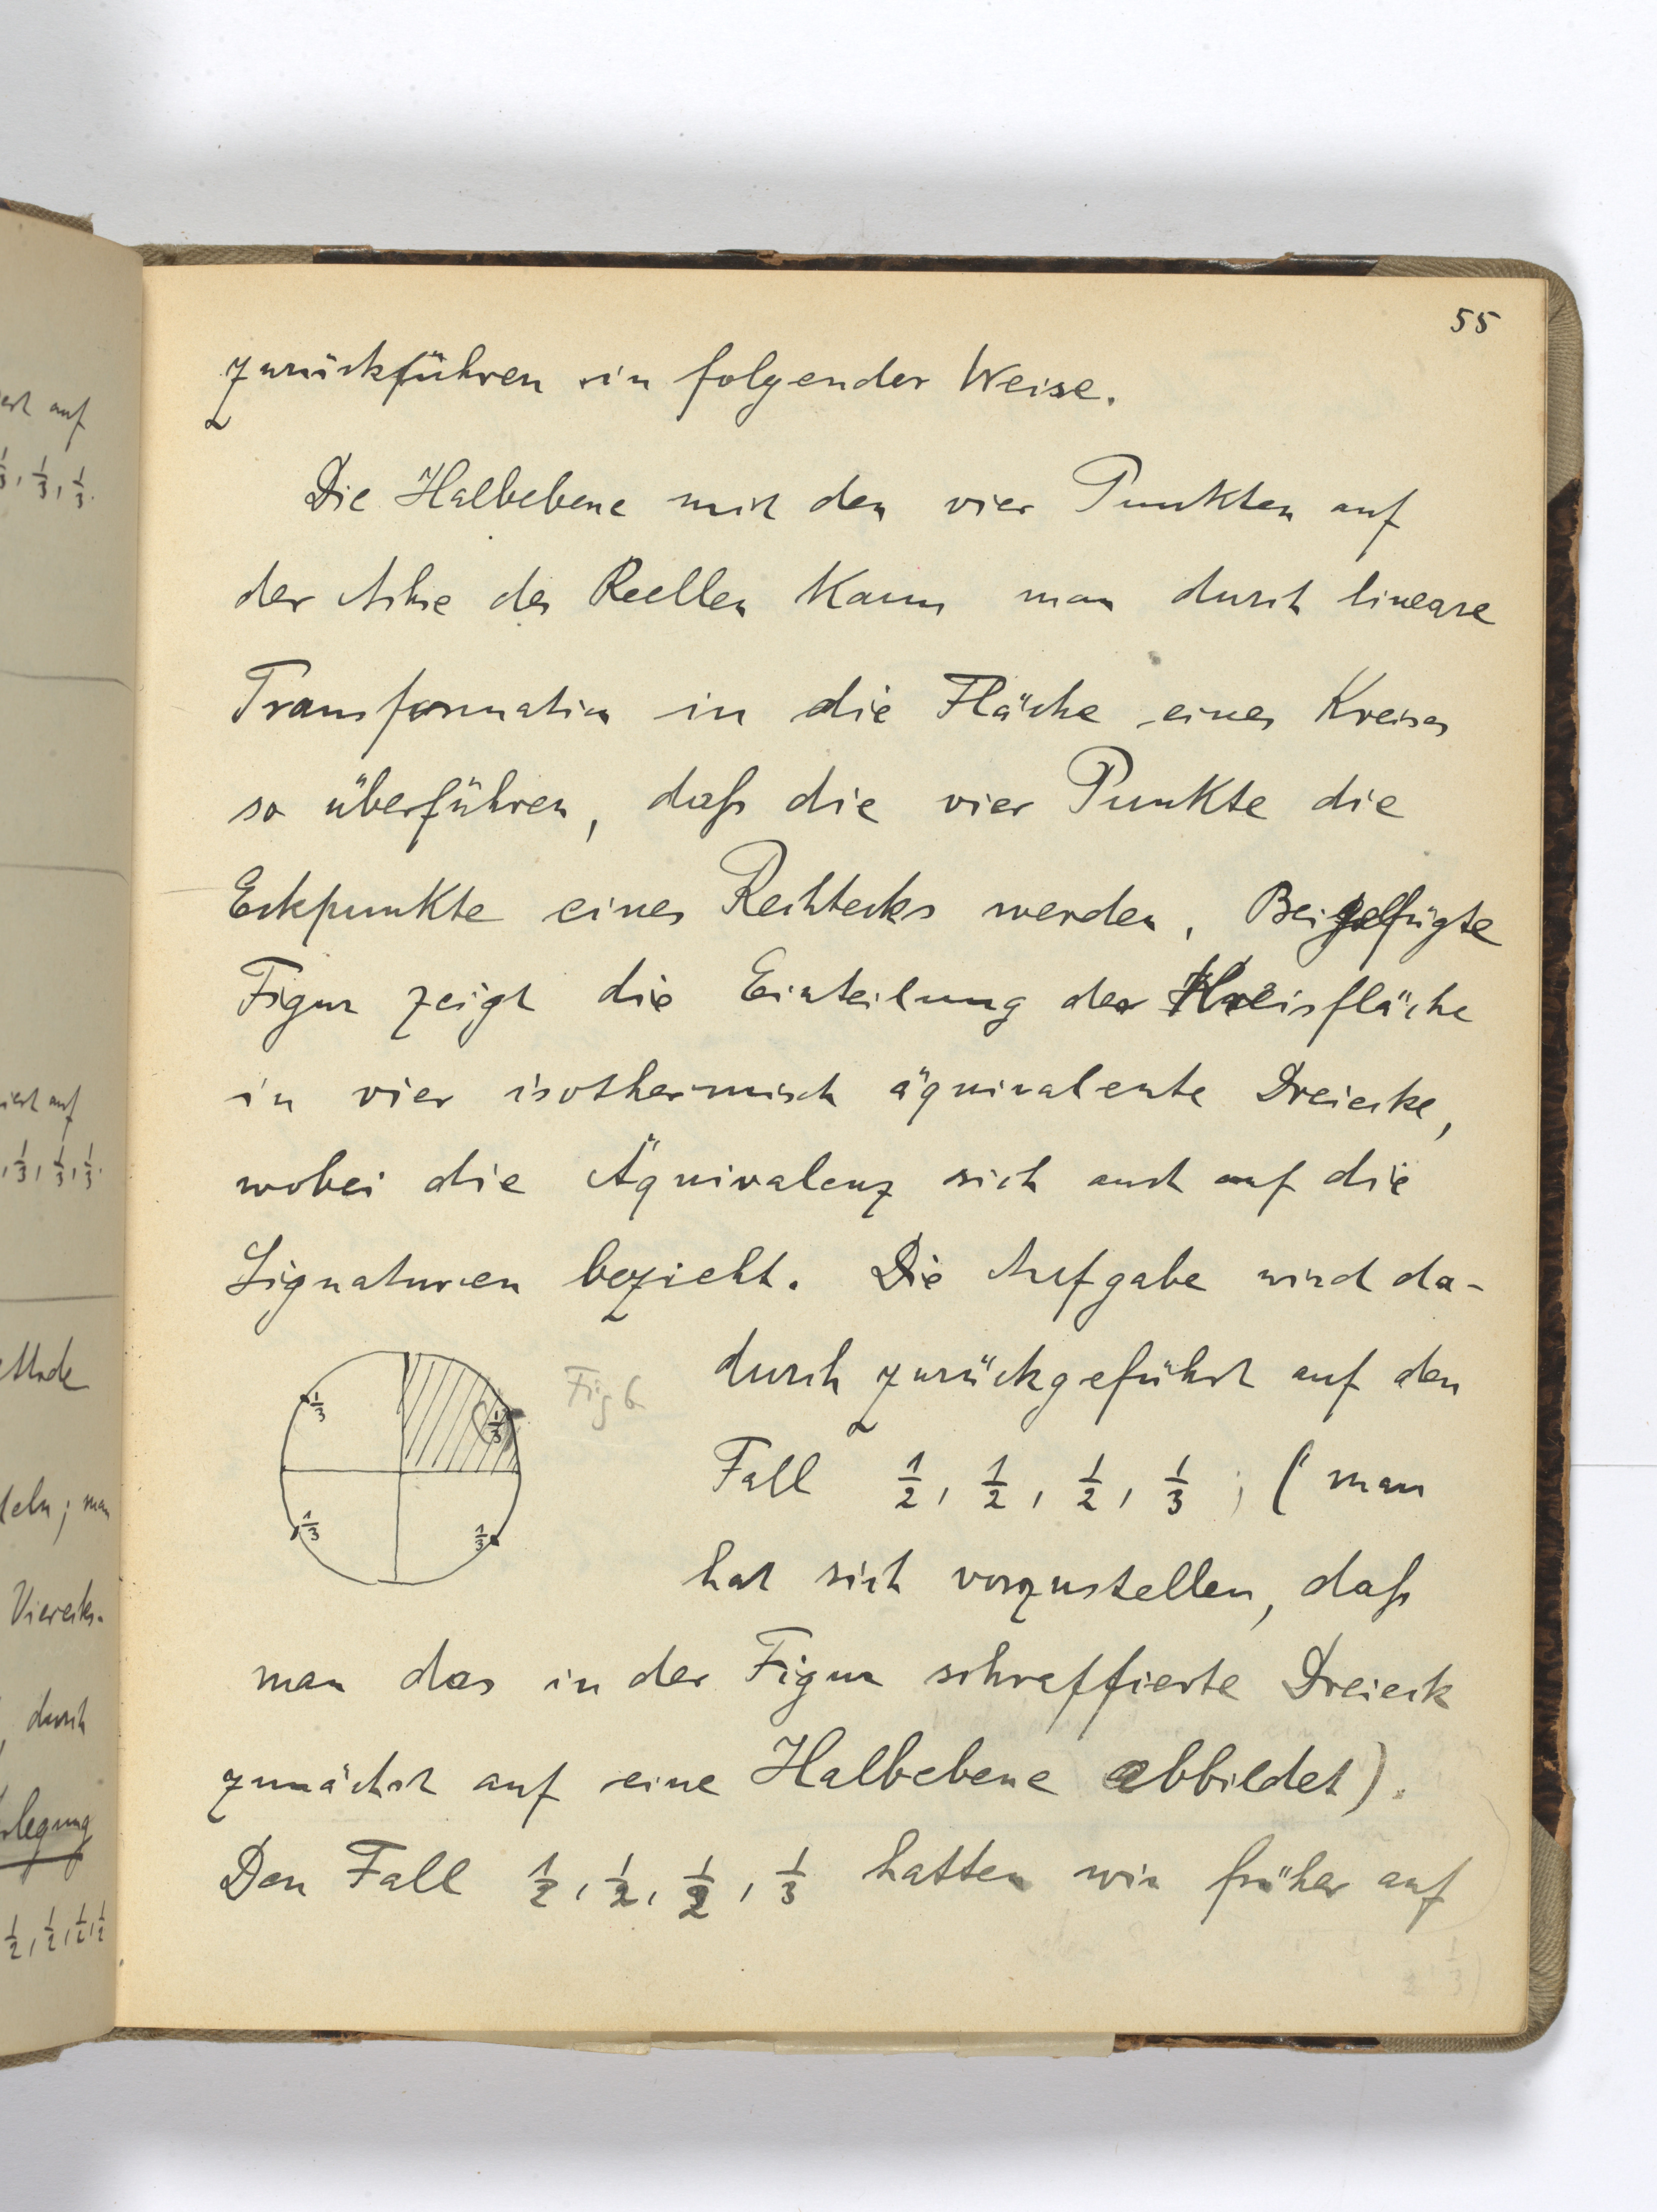 55
zurückführen in folgender Weise.
Die Halbebene mit den vier Punkten auf
der Achse des Reellen kann man durch lineare
Transformation in die Fläche eines Kreises
so überführen, daß die vier Punkte die
Eckpunkte eines Rechtecks werden. Beigefügte
Figur zeigt die Einteilung der Kreisfläche
in vier isothermisch äquivalente Dreiecke,
wobei die Äquivalenz sich auch auf die
Signaturen bezieht. Die Aufgabe wird da-
durch zurückgeführt auf den
Fall 1/2, 1/2, 1/2, 1/3; (man
hat sich vorzustellen, daß
man das in der Figur schraffierte Dreieck
zunächst auf eine Halbebene abbildet).
Den Fall 1/2, 1/2, 1/2, 1/3 hatten wir früher auf
Fig 6
1/3
1/3
1/3
1/3
auf
1/3, 1/3, 1/3.
auf
, 1/3, 1/3, 1/3.
deln; man
Vierecks-
durch
1/2, 1/2, 1/2, 1/2